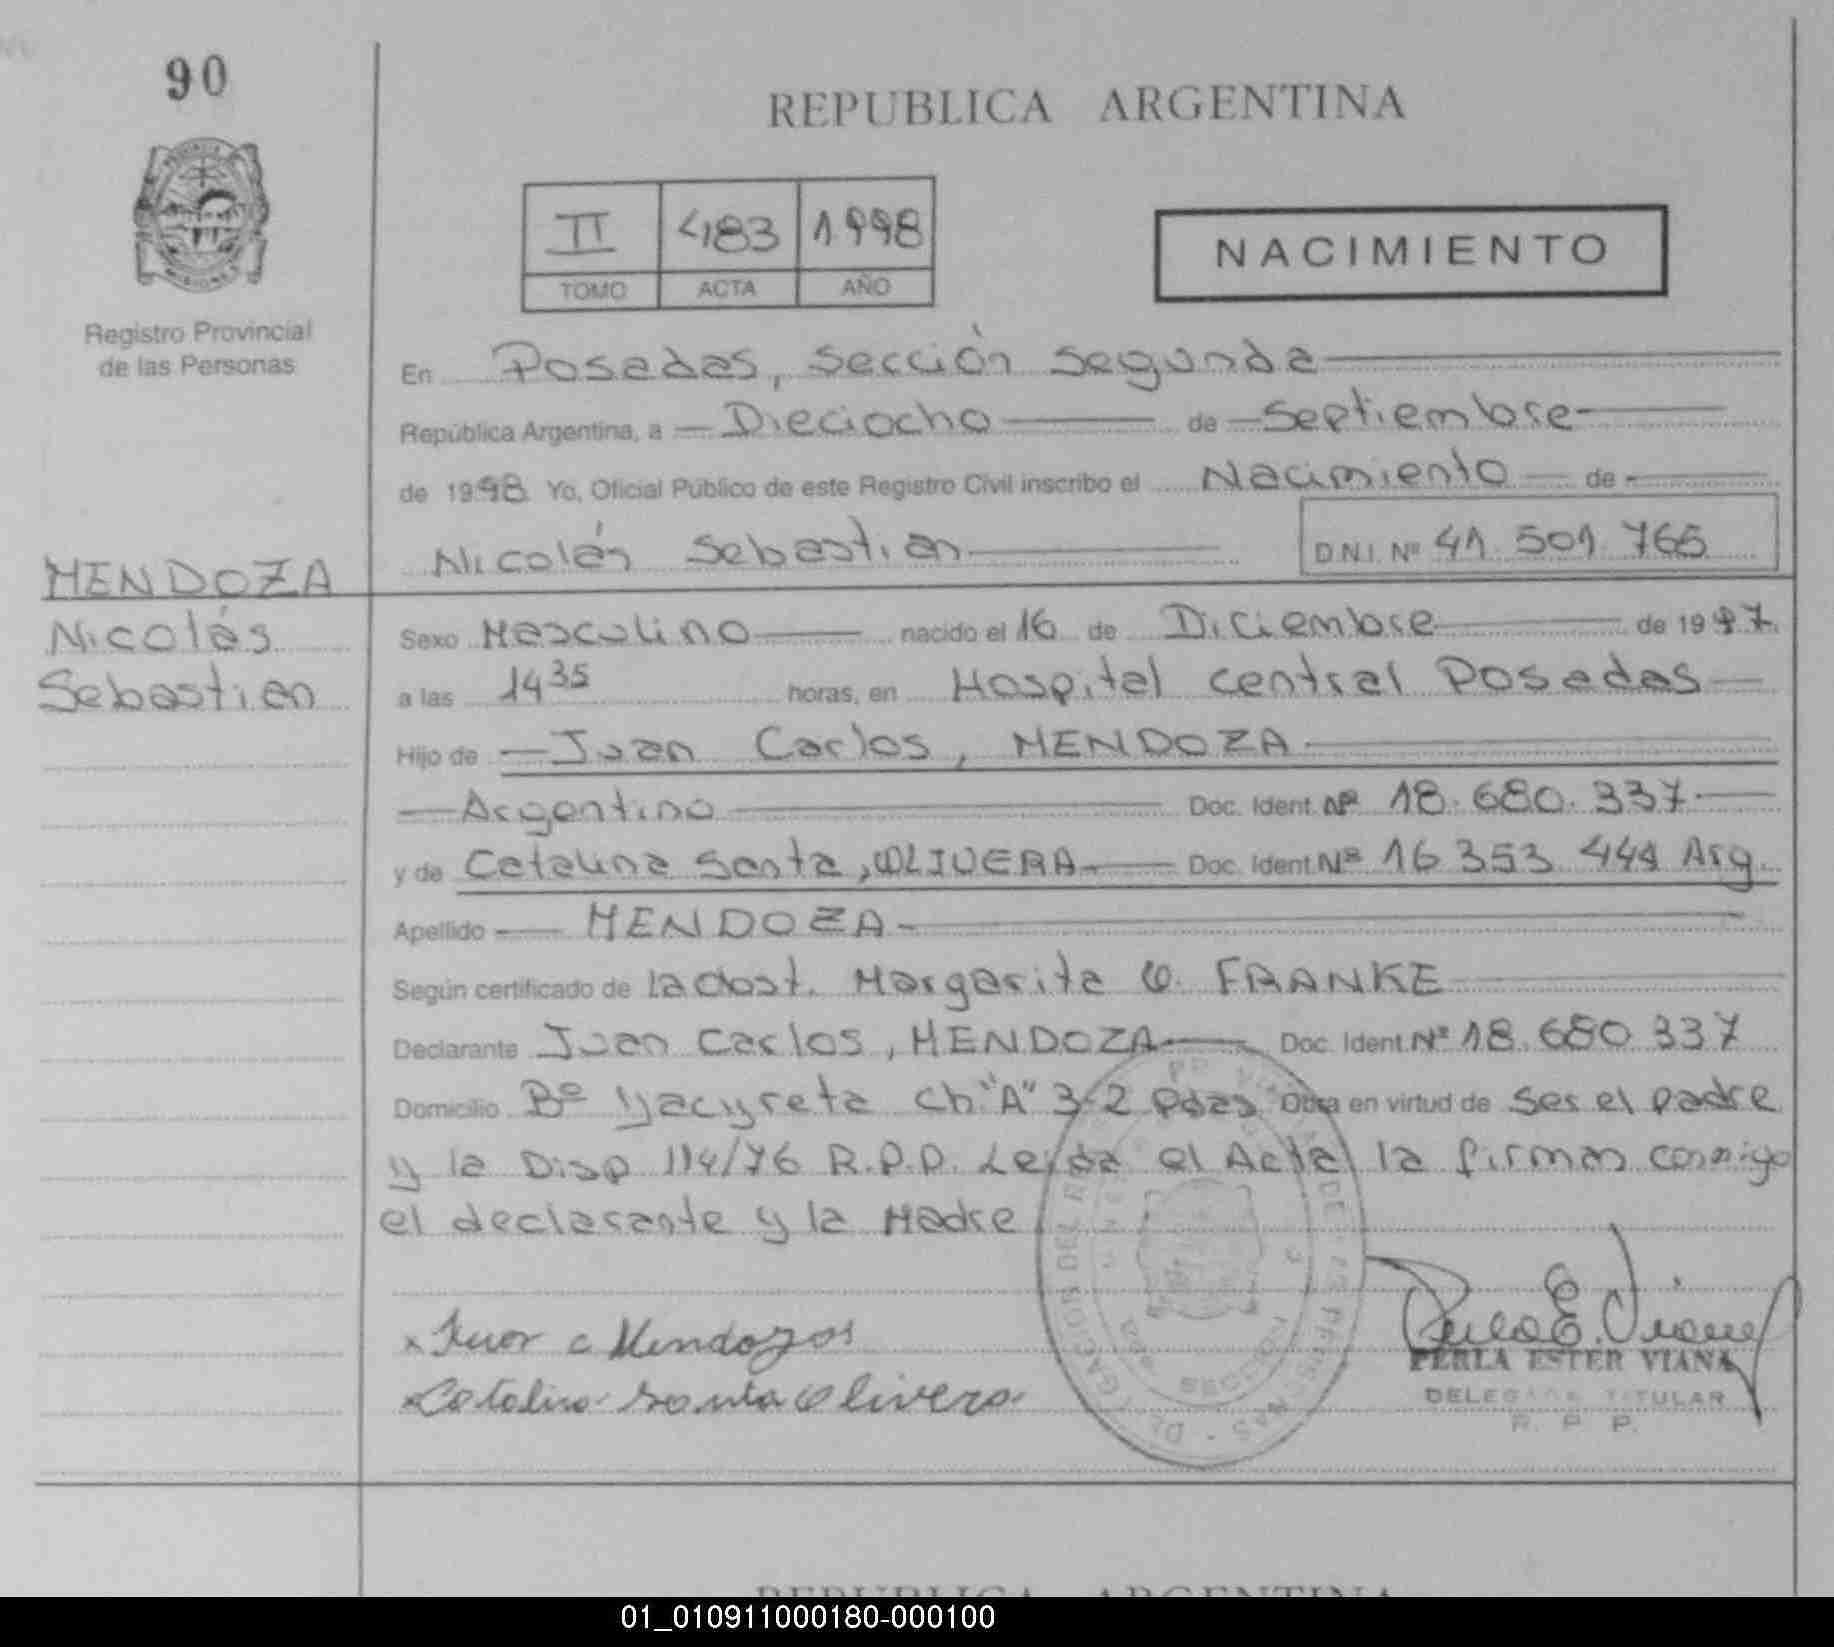 90
REPUBLICA ARGENTINA
II 483 1998
TOMO ACTA AÑO
NACIMIENTO
Registro Provincial
de las Personas
En Posadas, Sección Segunda
República Argentina, a Dieciocho de Septiembre
de 1998 Yo, Oficial Público de este Registro Civil inscribo el Nacimiento de
Nicolás Sebastian D.N.I. Nº 41.501.765
MENDOZA
Nicolás
Sebastian
Sexo Masculino nacido el 16 de Diciembre de 1997.
a las 14 35 horas, en Hospital central Posadas
Hijo de Juan Carlos, MENDOZA
Argentino Doc. Ident. Nº 18.680.337
y de Catalina Santa, OLIVERA Doc. Ident. Nº 16 353 444 Arg.
Apellido MENDOZA
Según certificado de la obst. Margarita O. FRANKE
Declarante Juan Carlos, MENDOZA Doc. Ident. Nº 18.680 337
Domicilio Bº Yacyreta Ch "A" 32 Pdas Obra en virtud de ser el padre
y la Disp 114/76 R.P.P. Leída el Acta la firman conmigo
el declarante y la Madre
x Juan C Mendoza
x Catalina Santa Olivera
PERLA ESTER VIANA
DELEGADA TITULAR
R. P. P.
REPUBLICA ARGENTINA
01_010911000180-000100